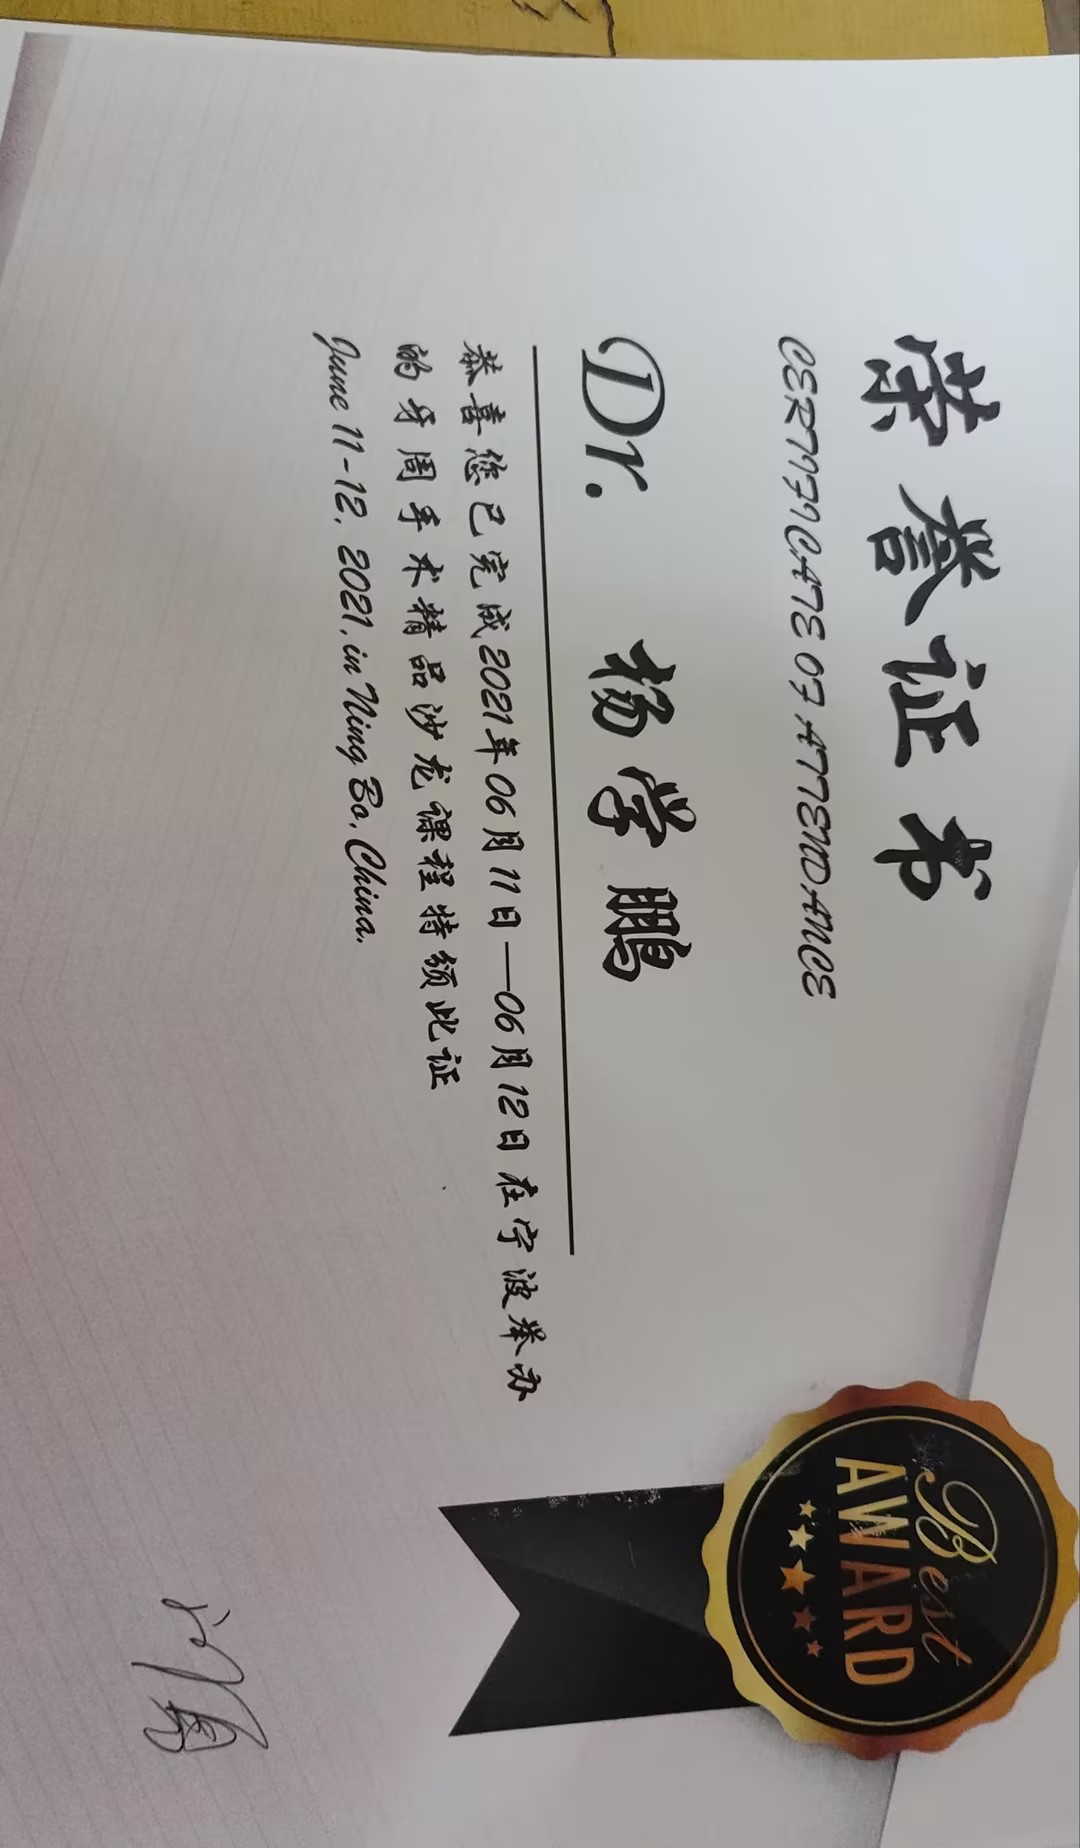 荣誉证书
CERTIFICATE OF ATTENDANCE
Dr. 杨学鹏
恭喜您已完成2021年06月11日—06月12日在宁波举办
的牙周手术精品沙龙课程特颁此证
June 11-12, 2021, in Ning Bo, China.
Best
AWARD